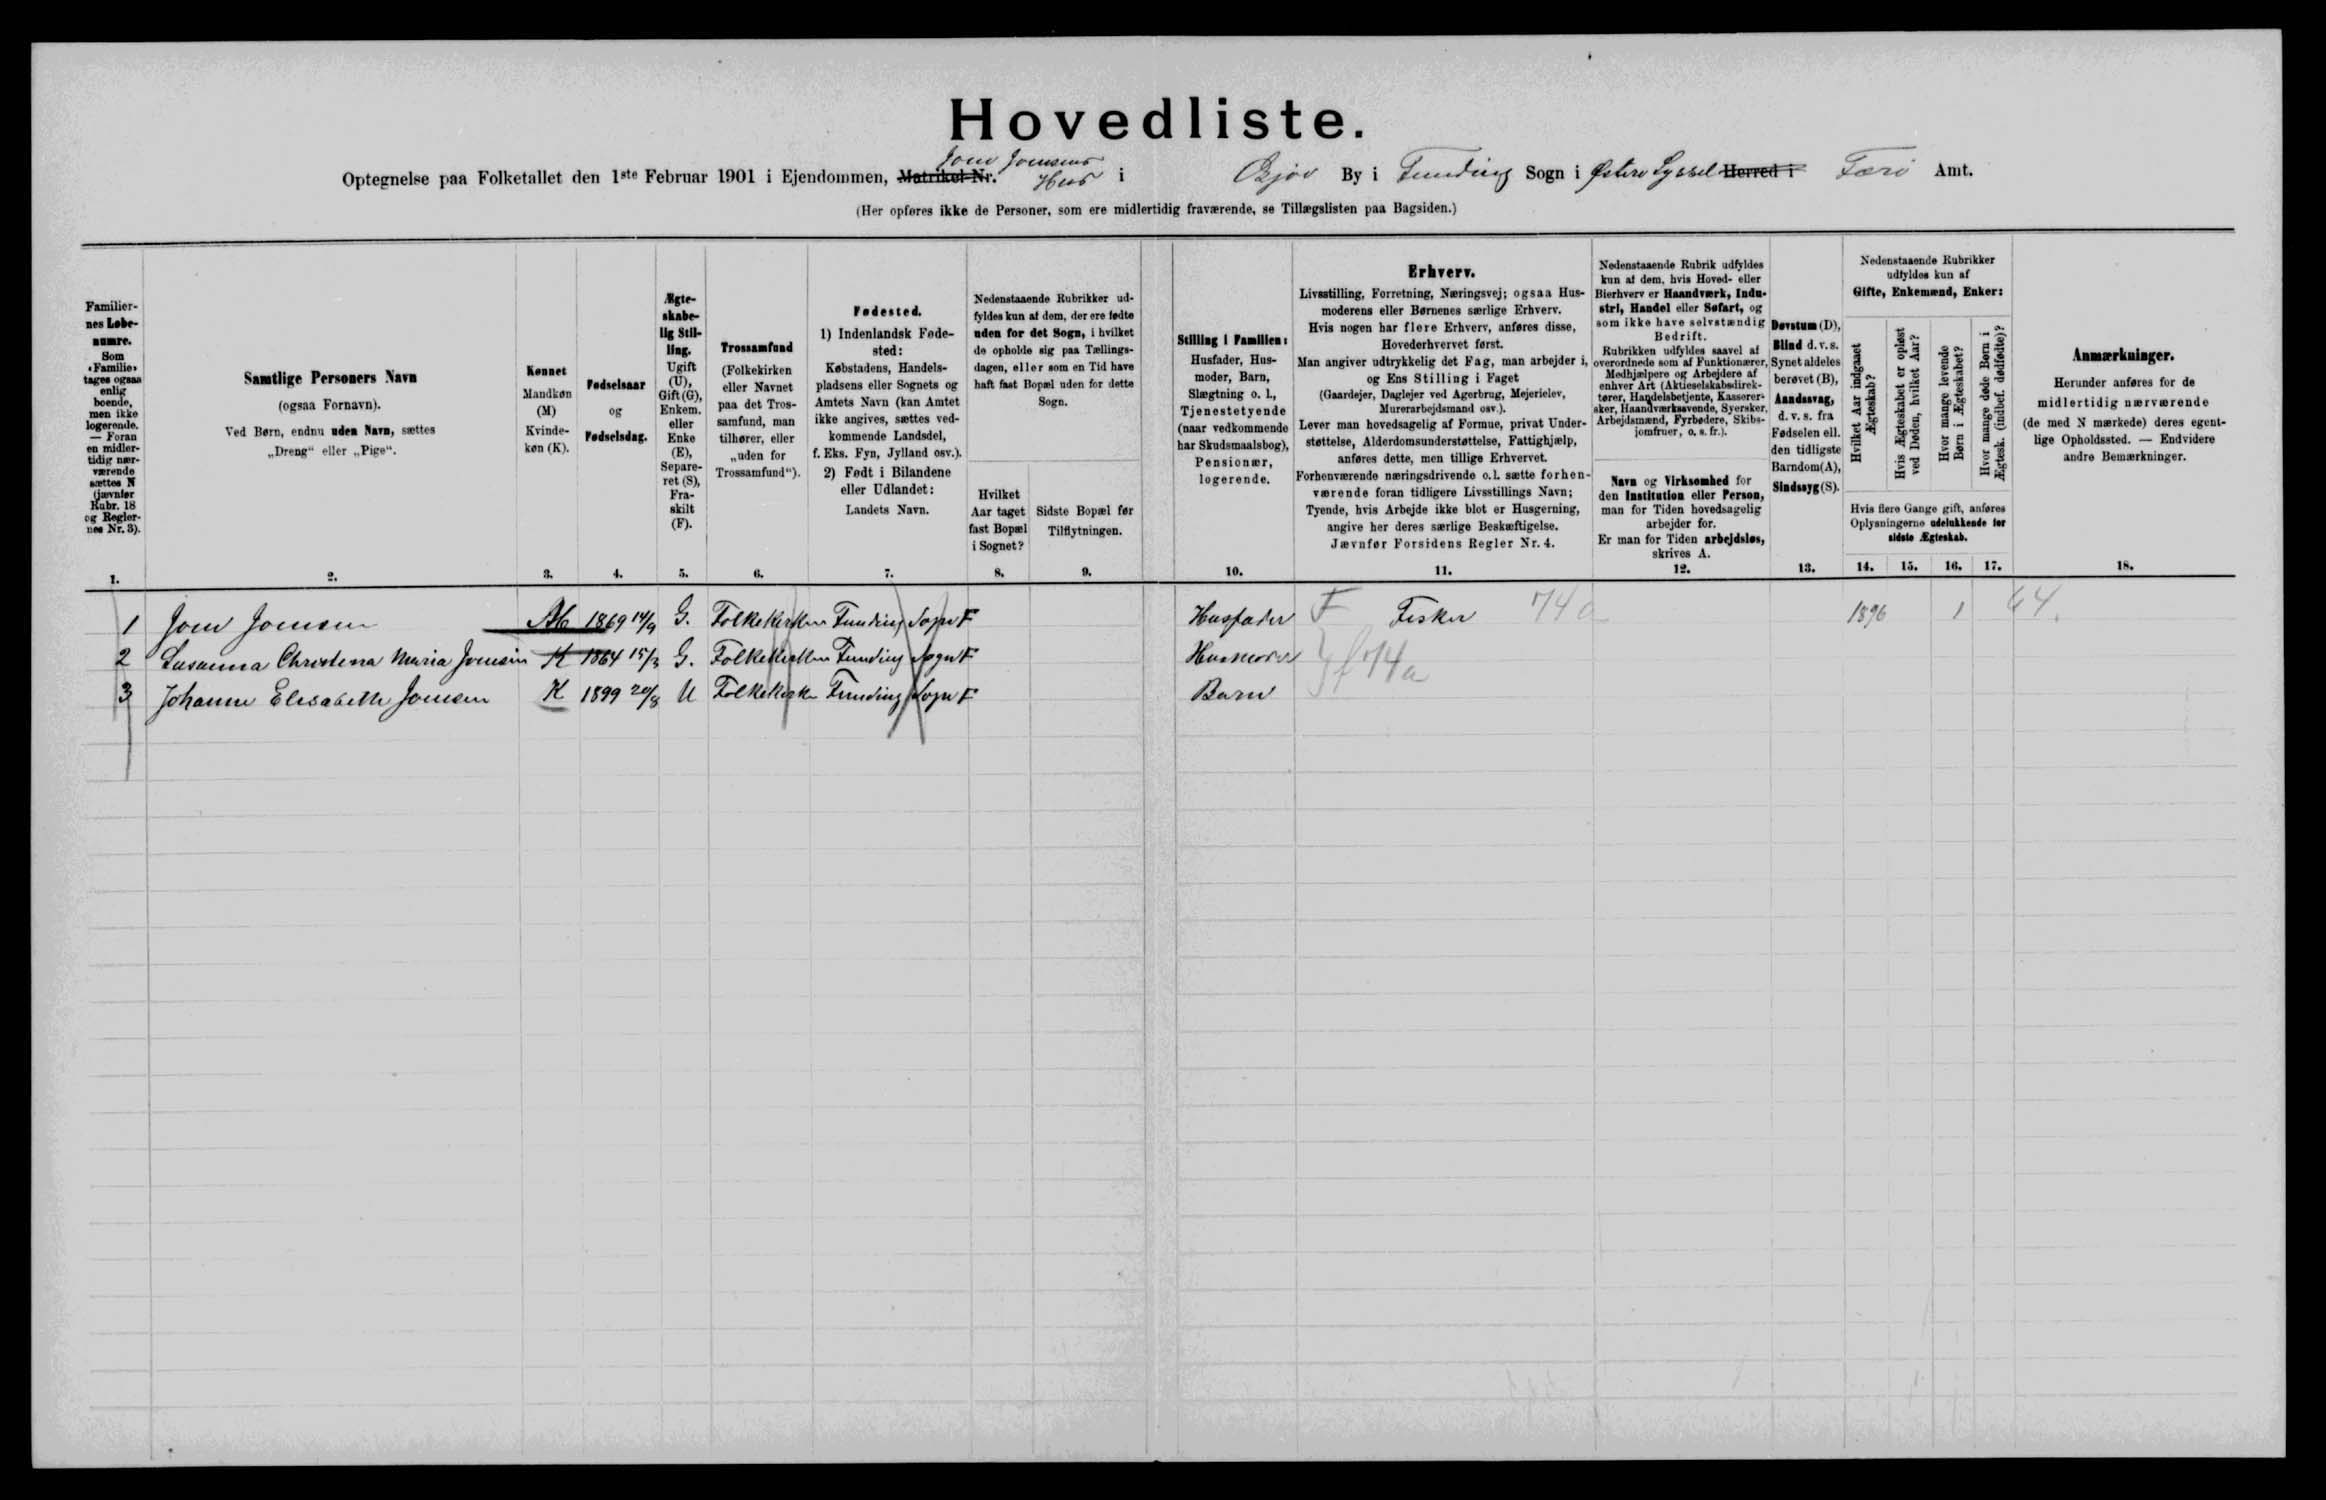 Hovedliste.
Optegnelse paa Folketallet den 1ste Februar 1901 i Ejendommen, Matrikel-Nr. Joen Joensens Hus i Gjov By i Funding Sogn i Østerø Syssel Herred i Færø Amt.
(Her opføres ikke de Personer, som ere midlertidig fraværende, se Tillægslisten paa Bagsiden.)
Familier-
nes Løbe-
numre.
Som
«Familie»
tages ogsaa
enlig
boende,
men ikke
logerende.
— Foran
en midler-
tidig nær-
værende
sættes N
(jævnfør
Rubr. 18
og Regler-
nes Nr. 3).
1.
Samtlige Personers Navn
(ogsaa Fornavn).
Ved Børn, endnu uden Navn, sættes
„Dreng“ eller „Pige“.
2.
Kønnet
Mandkøn
(M)
Kvinde-
køn (K).
3.
Fødselsaar
og
Fødselsdag.
4.
Ægte-
skabe-
lig Stil-
ling.
Ugift
(U),
Gift (G),
Enkem.
eller
Enke
(E),
Separe-
ret (S),
Fra-
skilt
(F).
5.
Trossamfund
(Folkekirken
eller Navnet
paa det Tros-
samfund, man
tilhører, eller
„uden for
Trossamfund“).
6.
Fødested.
1) Indenlandsk Føde-
sted:
Købstadens, Handels-
pladsens eller Sognets og
Amtets Navn (kan Amtet
ikke angives, sættes ved-
kommende Landsdel,
f. Eks. Fyn, Jylland osv.).
2) Født i Bilandene
eller Udlandet:
Landets Navn.
7.
Nedenstaaende Rubrikker ud-
fyldes kun af dem, der ere fødte
uden for det Sogn, i hvilket
de opholde sig paa Tællings-
dagen, eller som en Tid have
haft fast Bopæl uden for dette
Sogn.
Hvilket
Aar taget
fast Bopæl
i Sognet?
8.
Sidste Bopæl før
Tilflytningen.
9.
Stilling i Familien:
Husfader, Hus-
moder, Barn,
Slægtning o. l.,
Tjenestetyende
(naar vedkommende
har Skudsmaalsbog),
Pensionær,
logerende.
10.
Erhverv.
Livsstilling, Forretning, Næringsvej; ogsaa Hus-
moderens eller Børnenes særlige Erhverv.
Hvis nogen har flere Erhverv, anføres disse,
Hovederhvervet først.
Man angiver udtrykkelig det Fag, man arbejder i,
og Ens Stilling i Faget
(Gaardejer, Daglejer ved Agerbrug, Mejerielev,
Murerarbejdsmand osv.).
Lever man hovedsagelig af Formue, privat Under-
støttelse, Alderdomsunderstøttelse, Fattighjælp,
anføres dette, men tillige Erhvervet.
Forhenværende næringsdrivende o. l. sætte forhen-
værende foran tidligere Livsstillings Navn;
Tyende, hvis Arbejde ikke blot er Husgerning,
angive her deres særlige Beskæftigelse.
Jævnfør Forsidens Regler Nr. 4.
11.
Nedenstaaende Rubrik udfyldes
kun af dem, hvis Hoved- eller
Bierhverv er Haandværk, Indu-
stri, Handel eller Søfart, og
som ikke have selvstændig
Bedrift.
Rubrikken udfyldes saavel af
overordnede som af Funktionærer,
Medhjælpere og Arbejdere af
enhver Art (Aktieselskabsdirek-
tører, Handelsbetjente, Kasserer-
sker, Haandværkssvende, Syersker,
Arbejdsmænd, Fyrbødere, Skibs-
jomfruer, o. s. fr.).
Navn og Virksomhed for
den Institution eller Person,
man for Tiden hovedsagelig
arbejder for.
Er man for Tiden arbejdsløs,
skrives A.
12.
Døvstum (D),
Blind d. v. s.
Synet aldeles
berøvet (B),
Aandssvag,
d. v. s. fra
Fødselen ell.
den tidligste
Barndom (A),
Sindssyg (S).
13.
Nedenstaaende Rubrikker
udfyldes kun af
Gifte, Enkemænd, Enker:
Hvilket Aar indgaaet
Ægteskab?
Hvis Ægteskabet er opløst
ved Døden, hvilket Aar?
Hvor mange levende
Børn i Ægteskabet?
Hvor mange døde Børn i
Ægtesk. (indbef. dødfødte)?
Hvis flere Gange gift, anføres
Oplysningerne udelukkende for
sidste Ægteskab.
14. 15. 16. 17.
Anmærkninger.
Herunder anføres for de
midlertidig nærværende
(de med N mærkede) deres egent-
lige Opholdssted. — Endvidere
andre Bemærkninger.
18.
1 Joen Joensen M 1869 14/9 G. Folkekirken Funding Sogn F Husfader F Fisker 74a 1896 1 44.
2 Susanna Christena Maria Joensen K 1864 15/3 G. Folkekirken Funding Sogn F Husmoder f 74a
3 Johanne Elisabeth Joensen K 1899 20/8 U Folkekirke Funding Sogn F Barn